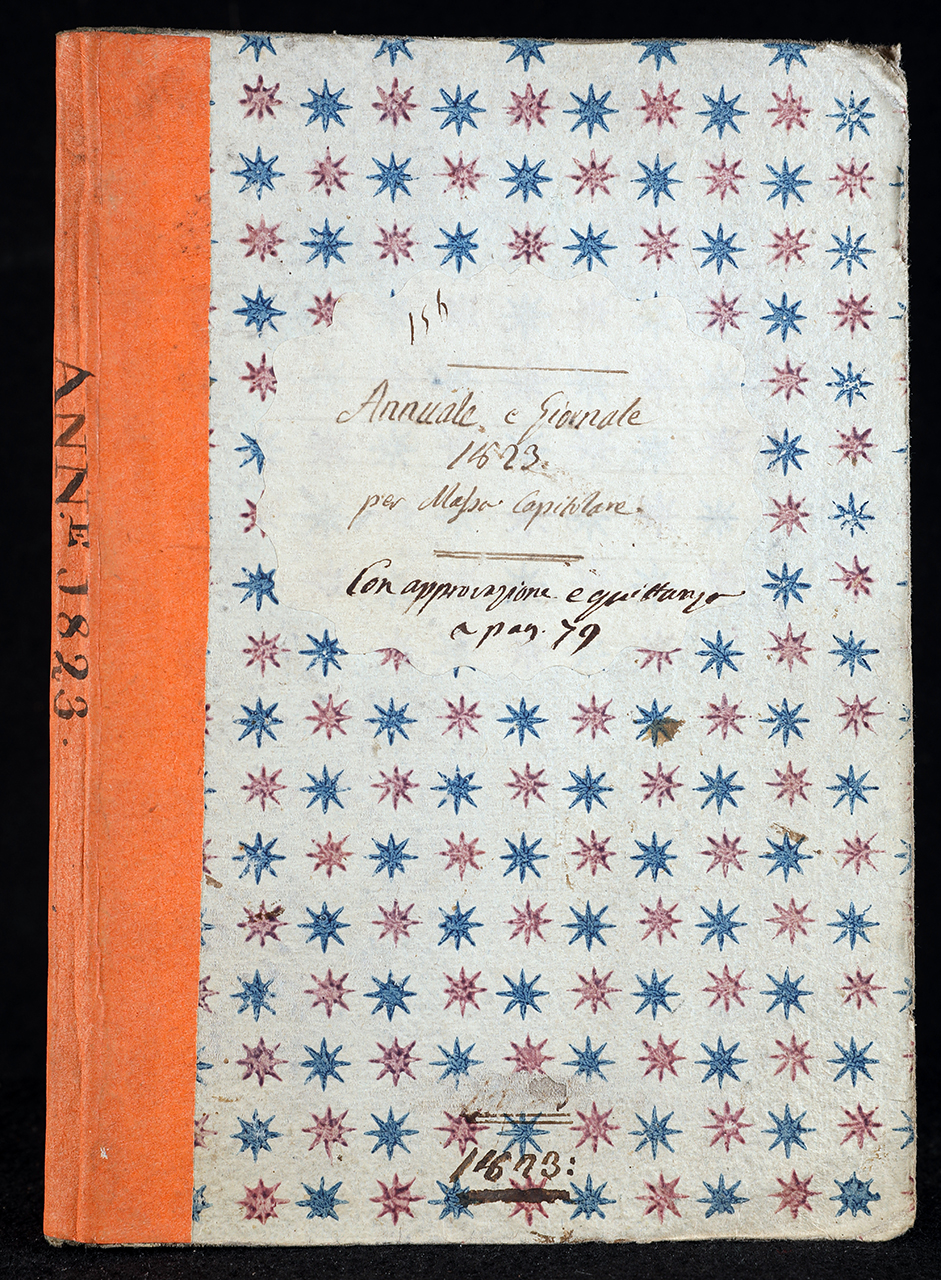 ANN.E 1823.
156
Annuale e Giornale
1823.
per Massa Capitolare.
Con approvazione e quittanza
a pag. 79
1823: